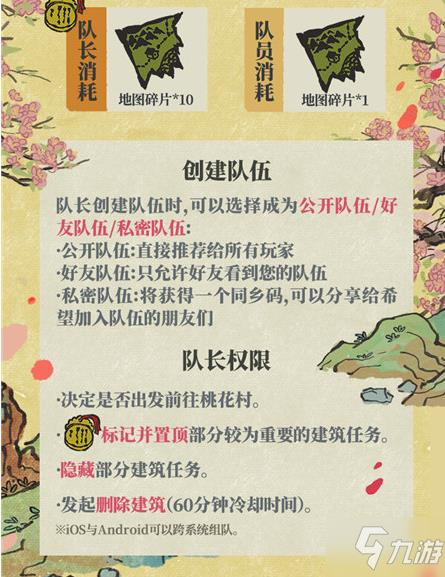 队长消耗
地图碎片*10
队员消耗
地图碎片*1
创建队伍
队长创建队伍时,可以选择成为公开队伍/好
友队伍/私密队伍:
·公开队伍:直接推荐给所有玩家
·好友队伍:只允许好友看到您的队伍
·私密队伍:将获得一个同乡码,可以分享给希
望加入队伍的朋友们
队长权限
·决定是否出发前往桃花村。
·标记并置顶部分较为重要的建筑任务。
·隐藏部分建筑任务。
·发起删除建筑(60分钟冷却时间)。
※iOS与Android可以跨系统组队。
九游